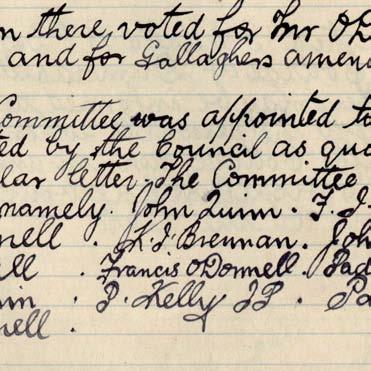 n there voted for Mr O'D
and for Gallaghers amen
Committee was appointed to
ted by the Council as qu
lar letter. The Committee
namely. John Quinn. T. J.
nell . K. J. Brennan. Joh
ell . Francis O'Donnell. Pad
in . P. Kelly JP . Pa
nell .